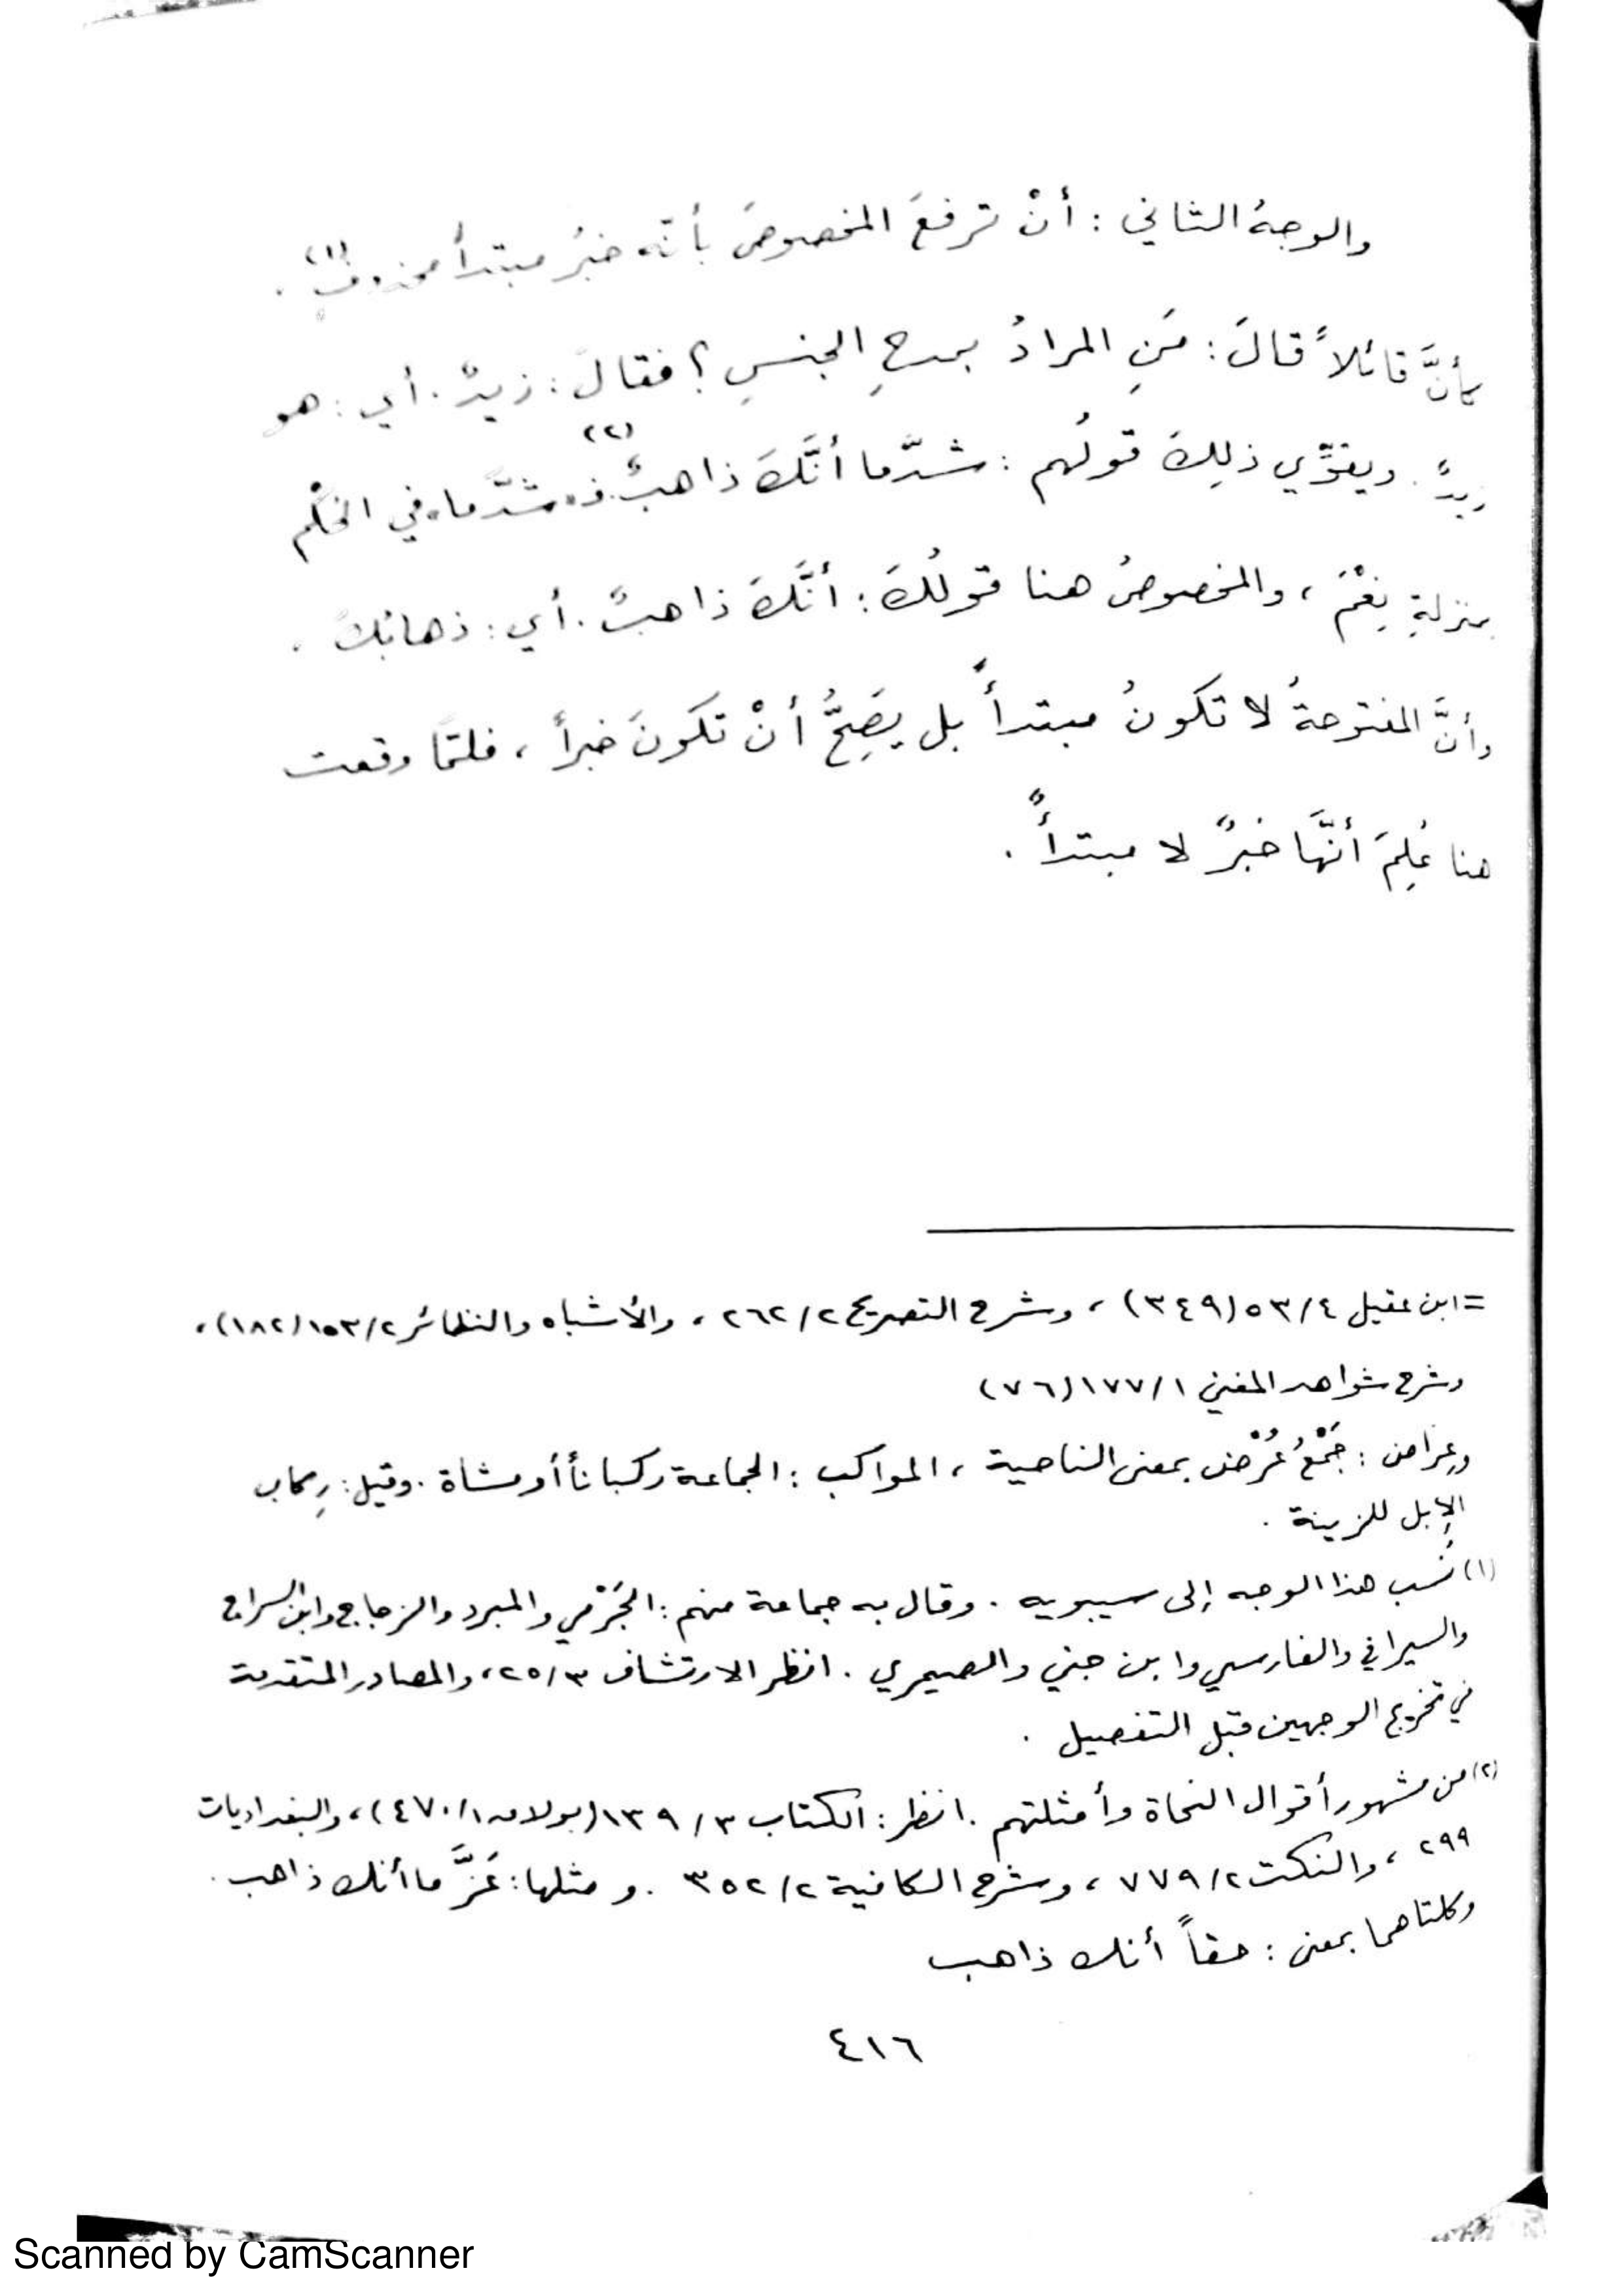 والوجهُ الثاني : أنْ ترفعَ المخصوصَ بأنّه خبرُ مبتدأ محذوفٍ(١) .
كأنَّ قائلاً قالَ : مَنِ المرادُ بمدحِ الجنسِ ؟ فقالَ : زيدٌ . أي : هو
زيدٌ . ويقوِّي ذلِكَ قولُهم : شدّما أنَّكَ ذاهبٌ(٢) . فـ «شدَّما» في الحُكْم
بمنزلةِ نِعْمَ ، والمخصوصُ هنا قولُكَ : أنَّكَ ذاهبٌ . أي : ذهابُكَ .
وأنَّ المفتوحةُ لا تكونُ مبتدأً بل يَصِحُّ أنْ تكونَ خبراً ، فلمّا وقعت
هنا عُلِمَ أنَّها خبرٌ لا مبتدأٌ .
= ابن عقيل ٥٣/٤ (٣٤٩) ، وشرح التصريح ٢٦٢/٢ ، والأشباه والنظائر ١٥٣/٢ (١٨٢) ،
وشرح شواهد المغني ١٧٧/١ (٧٦)
وعِراض : جَمْعُ عُرْض بمعنى الناحية ، المواكب : الجماعة ركباناً أو مشاة . وقيل : رِكاب
الإبل للزينة .
(١) نُسب هذا الوجه إلى سيبويه . وقال به جماعة منهم : الجَرْمي والمبرد والزجاج وابن السراج
والسيرافي والفارسي وابن جني والصيمري . انظر الارتشاف ٢٥/٣ ، والمصادر المتقدمة
في تخريج الوجهين قبل التفصيل .
(٢) من مشهور أقوال النحاة وأمثلتهم . انظر : الكتاب ١٣٩/٣ (بولاق ٤٧٠/١) ، والبغداديات
٢٩٩ ، والنكت ٧٧٩/٢ ، وشرح الكافية ٣٥٢/٢ . ومثلها : عَزَّ ما أنك ذاهب .
وكلتاهما بمعنى : حقاً أنك ذاهب
٤١٦
Scanned by CamScanner